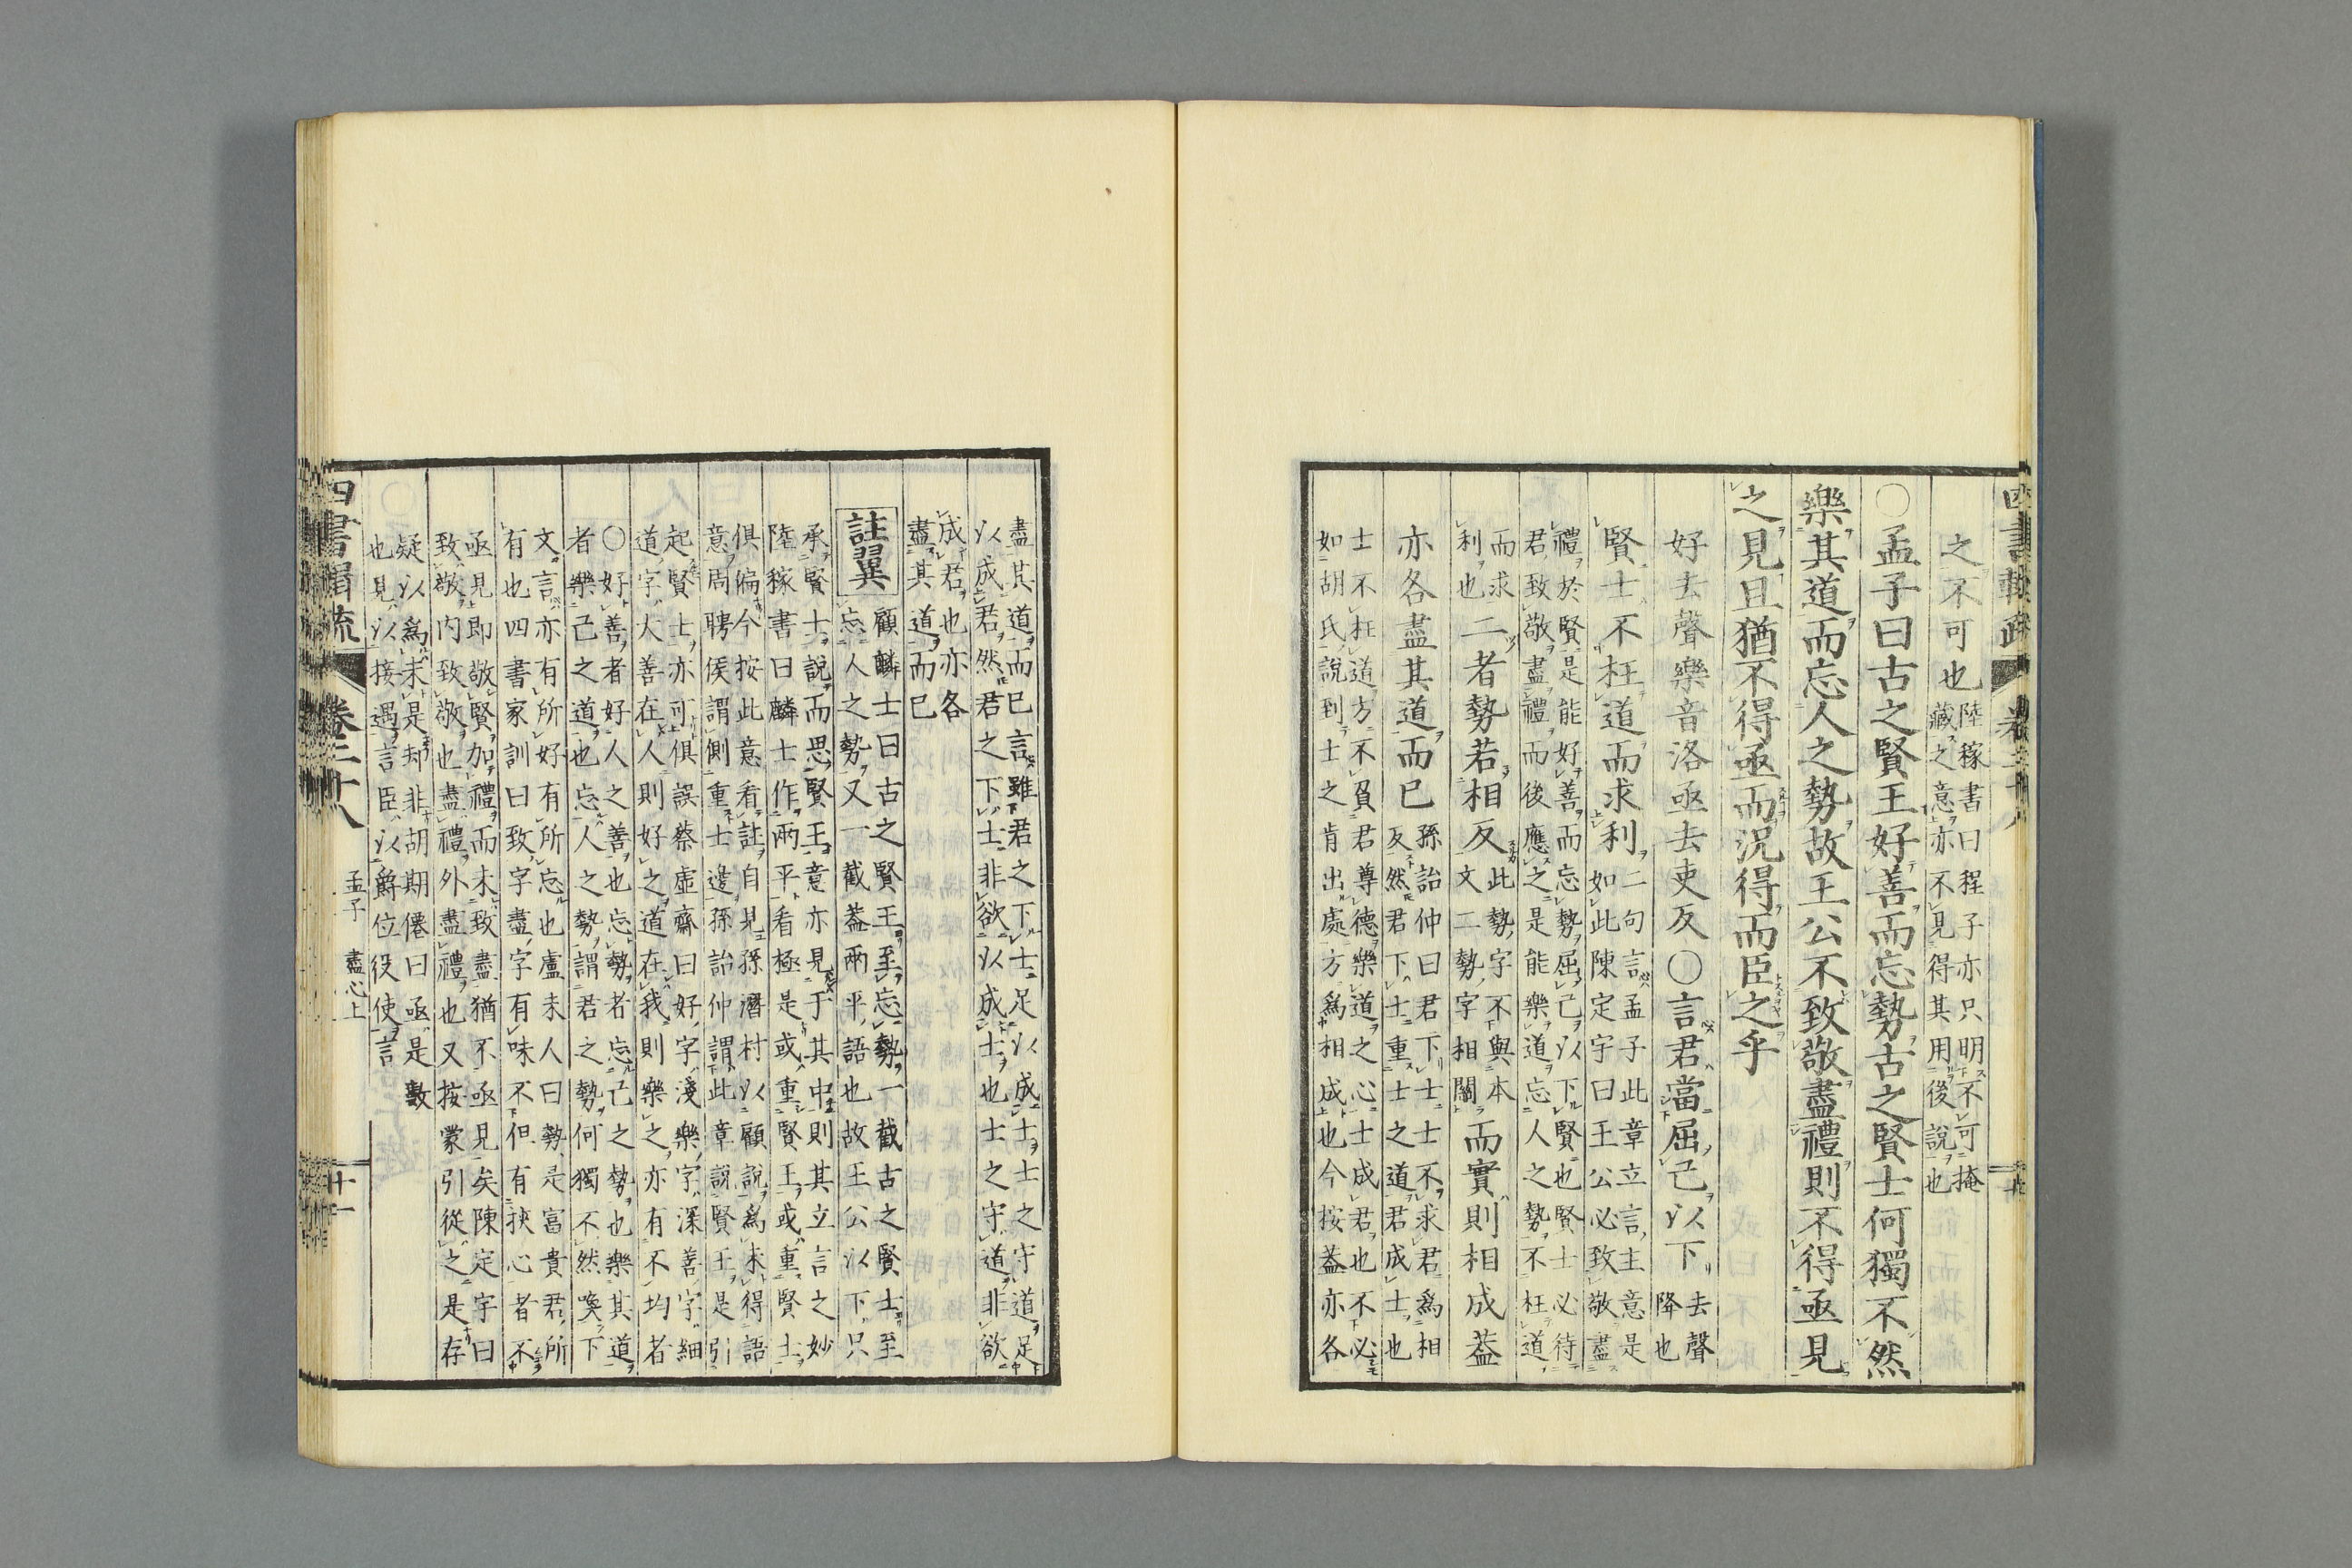 之不可也陸稼書曰程子亦只明不可掩
藏之意亦不見得其用後說也
○孟子曰古之賢王好善而忘勢古之賢士何獨不然
樂其道而忘人之勢故王公不致敬盡禮則不得亟見
之見且猶不得亟而況得而臣之乎
好去聲樂音洛亟去吏反○言君當屈己以下去聲
降也
賢士不枉道而求利二句言孟子此章立言主意是
如此陳定宇曰王公必致敬盡
禮於賢是能好善而忘勢屈己以下賢也賢士必待
君致敬盡禮而後應之是能樂道忘人之勢不枉道
而求
利也二者勢若相反此勢字不與本
文二勢字相關而實則相成蓋
亦各盡其道而已孫詒仲曰君下士士不求君為相
反然君下士重士之道君成士也
士不枉道方不負君尊德樂道之心士成君也不必
如胡氏說到士之肯出處方為相成也今按蓋亦各
盡其道而已言雖君之下士足以成士士之守道足
以成君然君之下士非欲以成士也士之守道非欲
成君也亦各
盡其道而已
註翼
顧麟士曰古之賢王至忘勢一截古之賢士至
忘人之勢又一截蓋兩平語也故王公以下只
承賢士說而思賢王意亦見于其中則其立言之妙
陸稼書曰麟士作兩平看極是或重賢王或重賢士
俱偏今按此意看註自見孫潛村以顧說為未得語
意周聘侯謂側重士邊孫詒仲謂此章說賢王是引
起賢士亦可俱誤蔡虛齋曰好字淺樂字深善字細
道字大善在人則好之道在我則樂之亦有不均者
○好善者好人之善也忘勢者忘己之勢也樂其道
者樂己之道也忘人之勢謂君之勢何獨不然喚下
文言亦有所好有所忘也盧未人曰勢是富貴君所
有也四書家訓曰致字盡字有味不但有挾心者不
亟見即敬賢加禮而未致盡猶不亟見矣陳定宇曰
致敬內致敬也盡禮外盡禮也又按蒙引從之是存
疑以為未是却非胡期僊曰亟是數
也見以接遇言臣以爵位役使言
四書輯疏
卷二十八
孟子 盡心上
十一